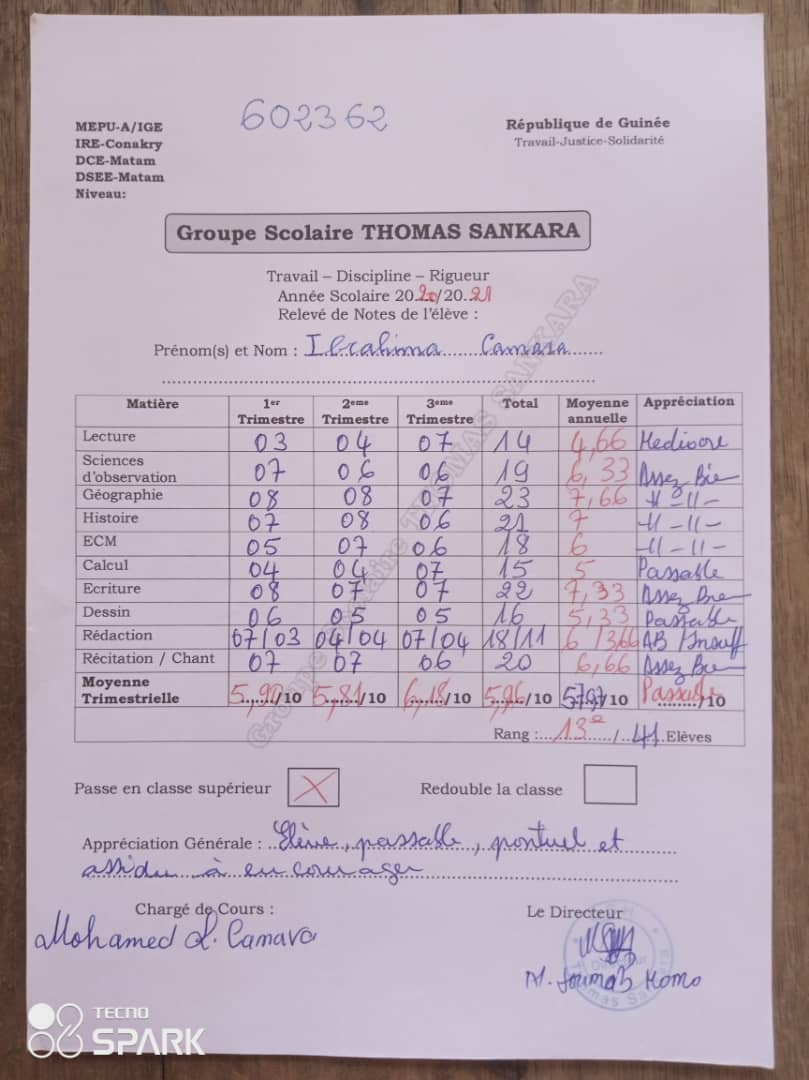 602362
MEPU-A/IGE
IRE-Conakry
DCE-Matam
DSEE-Matam
Niveau:
République de Guinée
Travail-Justice-Solidarité
Groupe Scolaire THOMAS SANKARA
Travail – Discipline – Rigueur
Année Scolaire 2020/2021
Relevé de Notes de l'élève :
Prénom(s) et Nom : Ibrahima Camara
Matière 1er Trimestre 2eme Trimestre 3eme Trimestre Total Moyenne annuelle Appréciation
Lecture 03 04 07 14 4,66 Mediocre
Sciences d'observation 07 06 06 19 6,33 Assez Bie
Géographie 08 08 07 23 7,66 -II-II-
Histoire 07 08 06 21 7 -II-II-
ECM 05 07 06 18 6 -II-II-
Calcul 04 04 07 15 5 Passable
Ecriture 08 07 07 22 7,33 Assez Bie
Dessin 06 05 05 16 5,33 Passable
Rédaction 07/03 04/04 07/04 18/11 6/3,66 AB/Insuff
Récitation / Chant 07 07 06 20 6,66 Assez Bie
Moyenne Trimestrielle 5,90/10 5,81/10 6,18/10 5,96/10 /10 Passable/10
Rang : 13e / 41 Elèves
Passe en classe supérieur X Redouble la classe
Appréciation Générale : Elève, passable, pontuel et
assidu à encourager
Chargé de Cours :
Le Directeur
Mohamed L. Camara
Groupe Scolaire THOMAS SANKARA
TECNO
SPARK